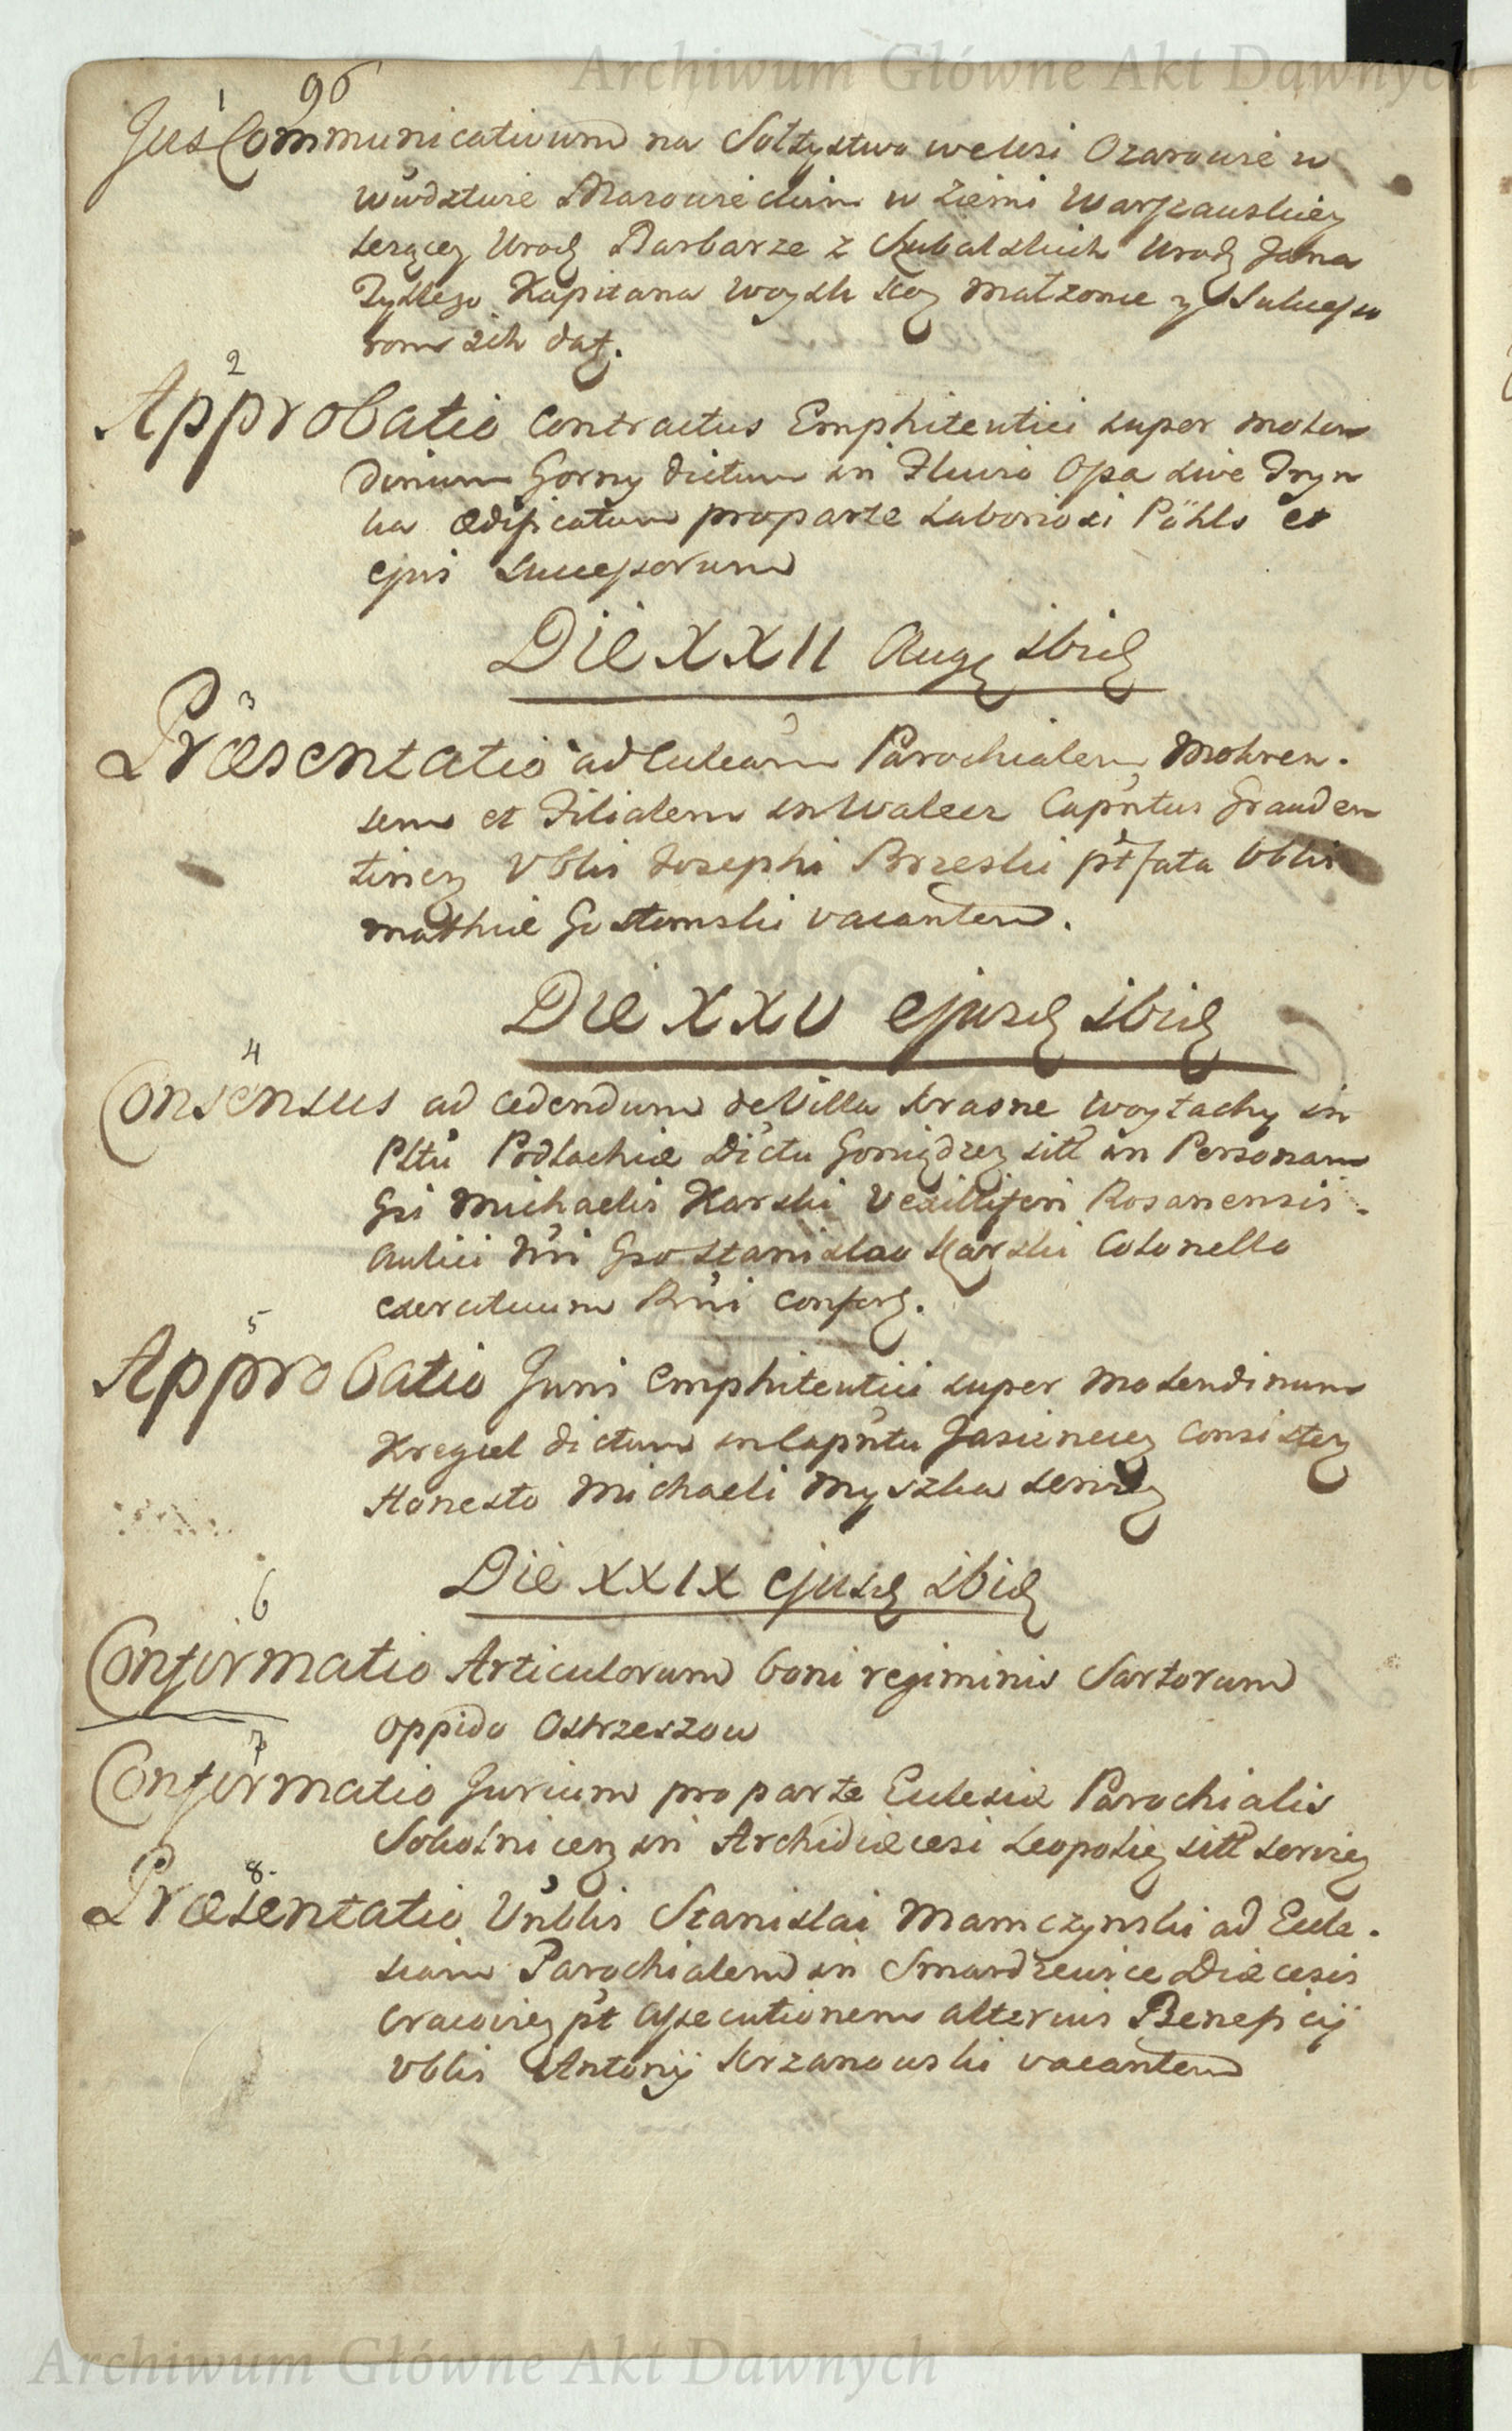 Archiwum Główne Akt Dawnych
96
1
Jus Communicativum na Sołtystwo we Wsi Ozarowie w
Wwdztwie Mazowieckim w Ziemi Warszawskiey
lezącey Urodz Barbarze z Szubalskich Urodz Jana
Zyllego Kapitana Woysk Kor Małzonce y Sukcesso
rom ich dat.
2
Approbatio Contractus Emphiteutici super molen
dinum Gorny dictum in Fluvio Ossa sive Tryn
ka ædificatum pro parte Laboriosi Pöhls et
ejus Successorum
Die XXII Aug ibid
3
Præsentatio ad Eccleam Parochialem Mokren.
sem et Filialem in Walecz Capntus Grauden
tinen Vblis Josephi Brzeski pt fata Vblis
Mathiæ Gostomski vacantem.
Die XXV ejusd ibid
4
Consensus ad cedendum de Villa Krasne Woytachy in
Pltu Podlachiæ Dictu Goniądzen sitt in Personam
Gsi Michaelis Karski Vexilliferi Rosanensis
Aulici Nri Gso Stanislao Karski Colonello
exercituum Rni Confert.
5
Approbatio Juris Emphiteutici super Molendinum
Kregiel dictum in Capntu Jasienecen Consisten
Honesto Michaeli Myszka servien
Die XXIX ejusd ibid
6
Confirmatio Articulorum boni regiminis Sartorum
Oppido Ostrzeszow
7
Confirmatio Jurium pro parte Ecclesiæ Parochialis
Sokolnicen in Archidiæcesi Leopolien sitt servien
8.
Præsentatio Vnblis Stanislai Mamczynski ad Eccle.
siam Parochialem in Smardzewice Diæcesis
Cracovien pt assecutionem alterius Beneficij
Vblis Antonij Krzanowski vacantem
Archiwum Główne Akt Dawnych